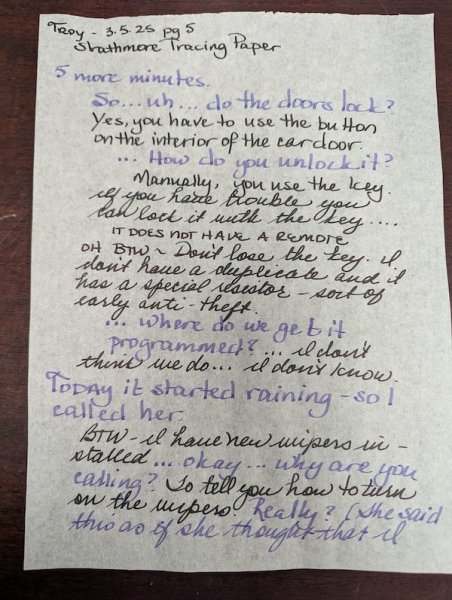 Troy - 3.5.25 pg 5
Strathmore Tracing Paper
5 more minutes.
So... uh... do the doors lock?
Yes, you have to use the button
on the interior of the car door.
... How do you unlock it?
Manually, you use the key.
if you have trouble you
can lock it with the key....
IT DOES NOT HAVE A REMOTE
OH BTW ~ Don't lose the key. I
don't have a duplicate and it
has a special resistor - sort of
early anti-theft.
... where do we get it
programmed? ... I don't
think we do... I don't know.
TODAY it started raining - so I
called her.
BTW - I have new wipers in-
stalled... okay... why are you
calling? To tell you how to turn
on the wipers. Really? (She said
this as if she thought that I